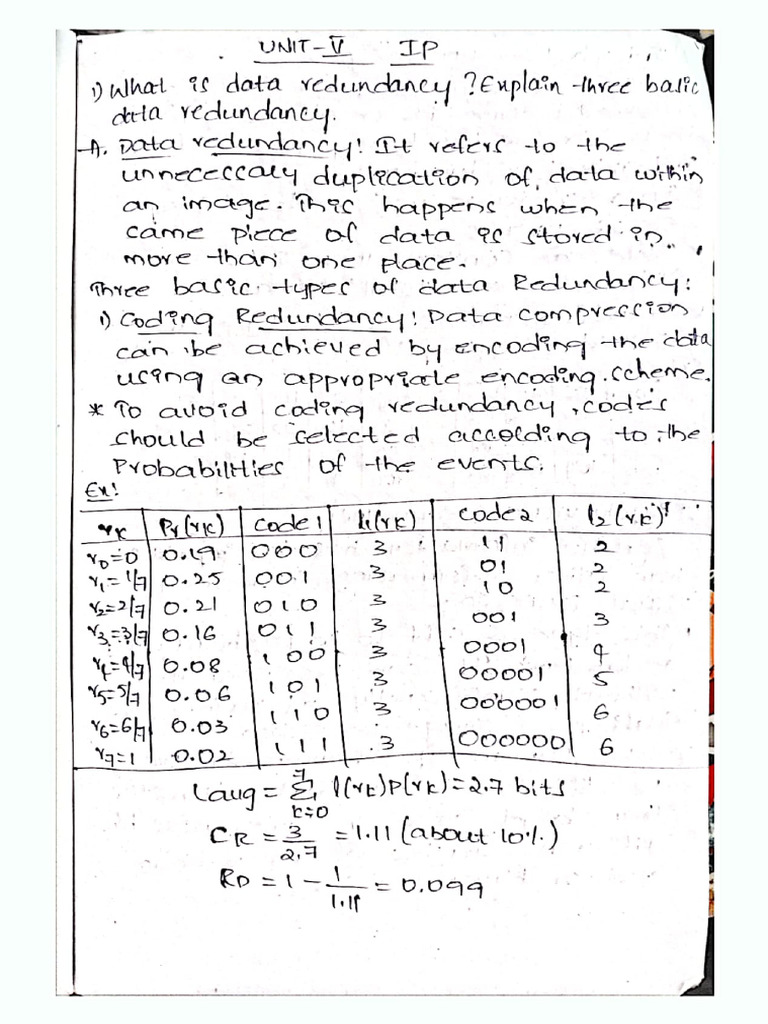 UNIT-V IP
1) What is data redundancy? Explain three basic
data redundancy.
A. Data redundancy: It refers to the
unnecessary duplication of data within
an image. This happens when the
same piece of data is stored in
more than one place.
Three basic types of data Redundancy:
1) Coding Redundancy: Data compression
can be achieved by encoding the data
using an appropriate encoding scheme.
* To avoid coding redundancy, codes
should be selected according to the
Probabilities of the events.
Ex:
rk Pr(rk) Code 1 l1(rk) Code 2 l2(rk)
r0=0 0.19 000 3 11 2
r1=1/7 0.25 001 3 01 2
r2=2/7 0.21 010 3 10 2
r3=3/7 0.16 011 3 001 3
r4=4/7 0.08 100 3 0001 4
r5=5/7 0.06 101 3 00001 5
r6=6/7 0.03 110 3 000001 6
r7=1 0.02 111 3 000000 6
Lavg = 7 Σ k=0 l(rk)P(rk) = 2.7 bits
CR = 3/2.7 = 1.11 (about 10%)
RD = 1 - 1/1.11 = 0.099